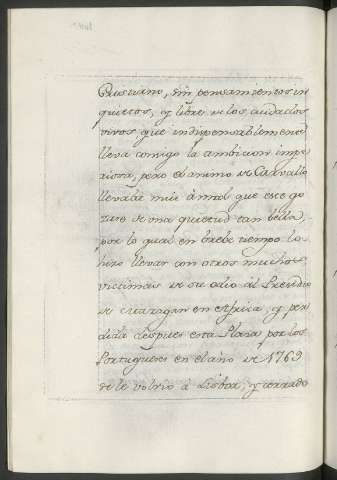 sin pensamientos in
quietos, y libre de los cuidados
vivos que indispensablemente
lleva consigo la ambicion
pero el animo de Carvallo
llevaba mui à mal que este go
zase de una quietud tan bella,
por lo qual en brebe tiempo lo
hizo llevar con otros muchos
victimas de su odio al Presidio
de en Africa, y per
dida despues esta Plaza por los
Portugueses en el año de 1769
se le volvio à Lisboa, y cerrado